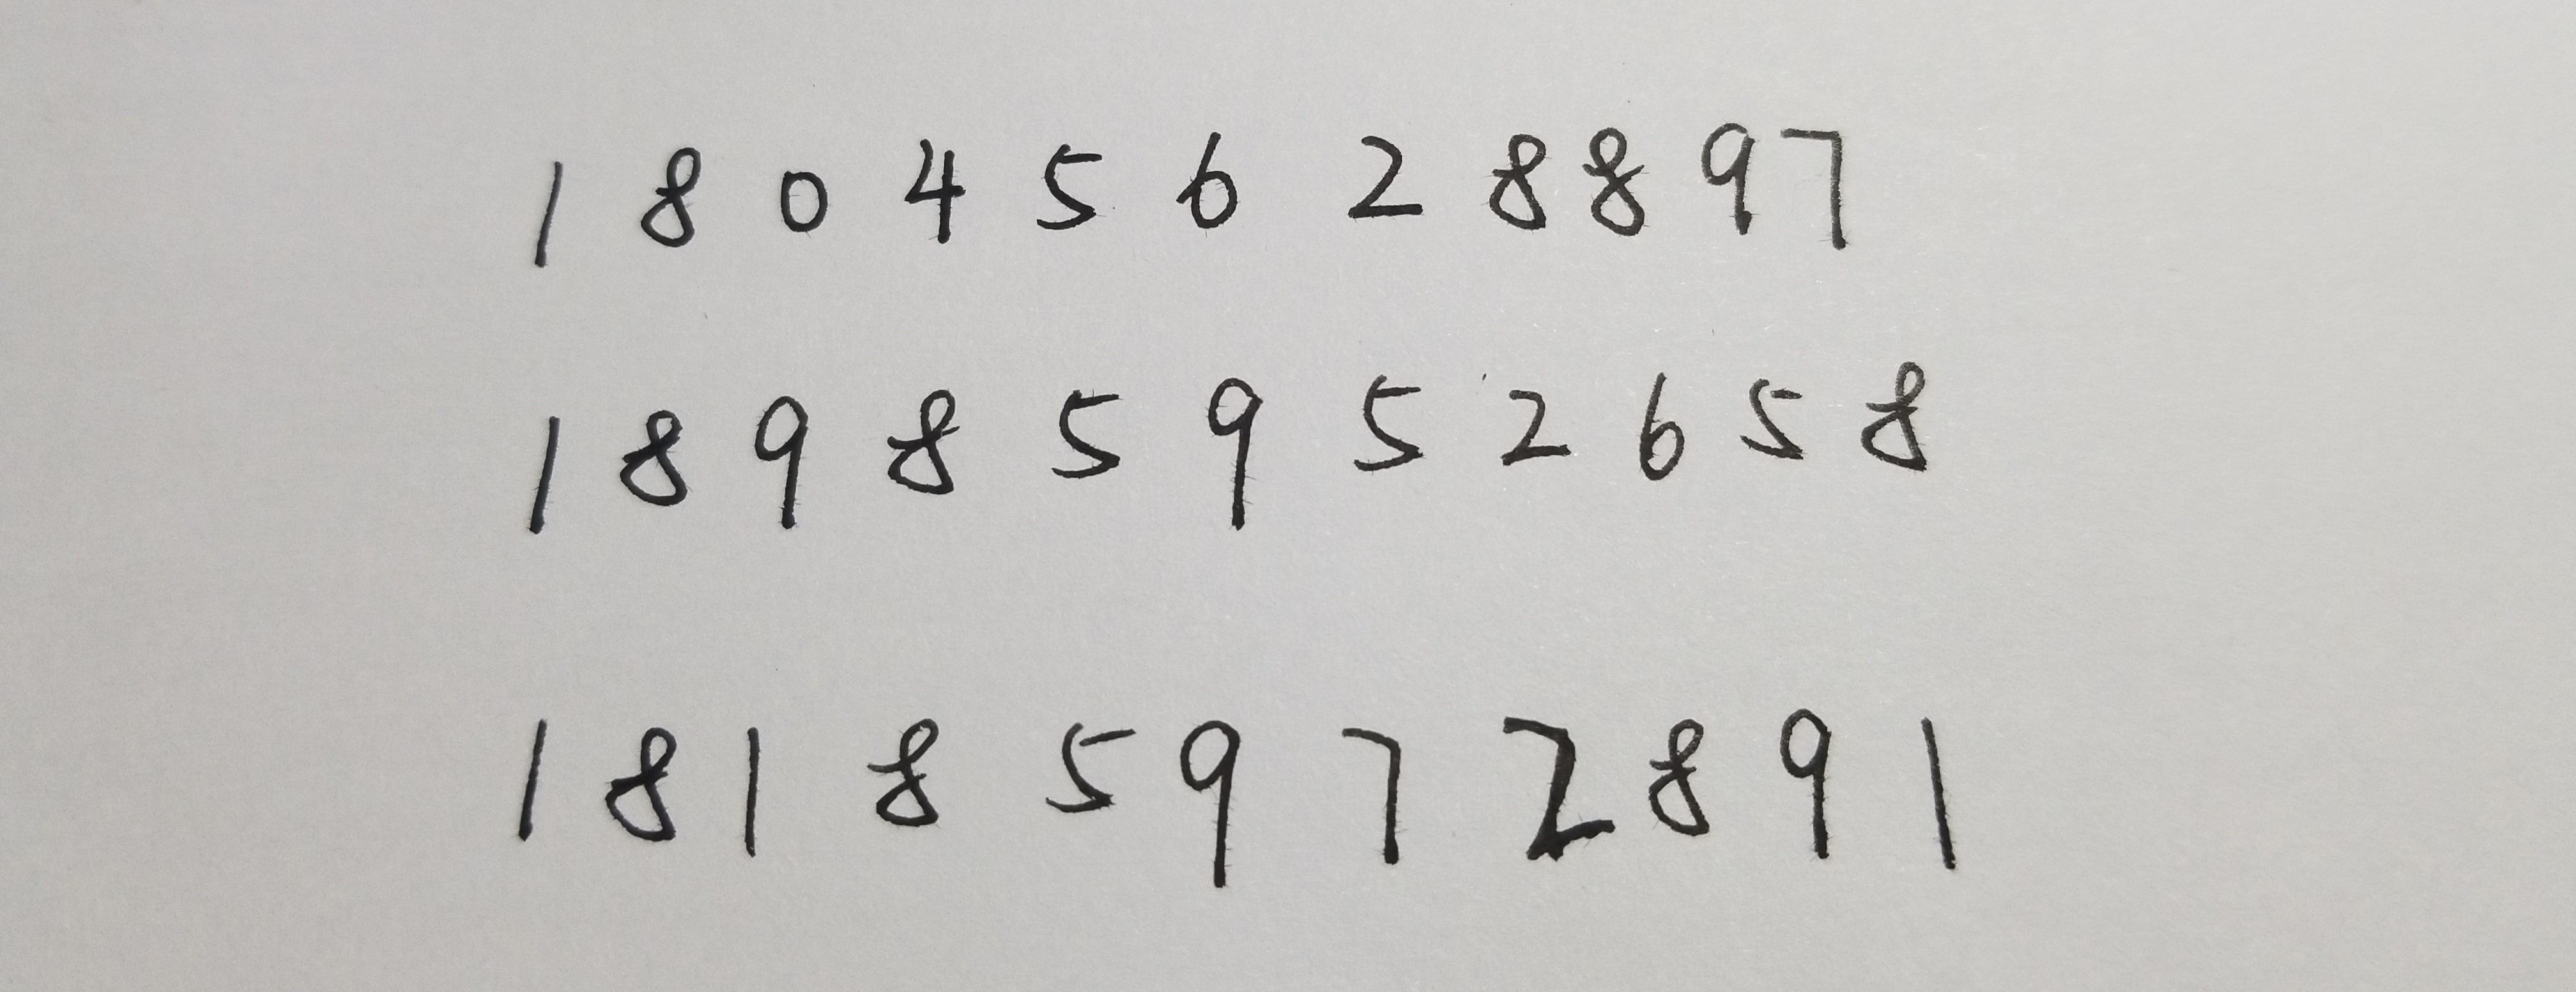 18045628897
18985952658
18185972891